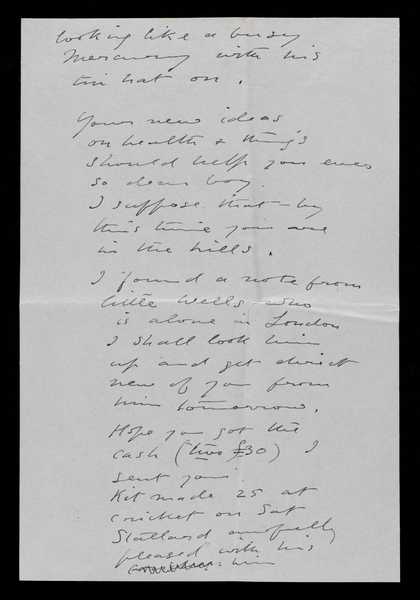 looking like a busy
Mercury with his
tin hat on.
Your new ideas
on health & things
should help you ever
so dear boy.
I suppose that by
this time you are
in the hills.
I found a note from
little Wells who
is alone in London
I shall look him
up and get direct
news of you from
him tomorrow.
Hope you got the
cash (two £30) I
sent you
Kit made 25 at
cricket on Sat
Stallard awfully
pleased with his
him